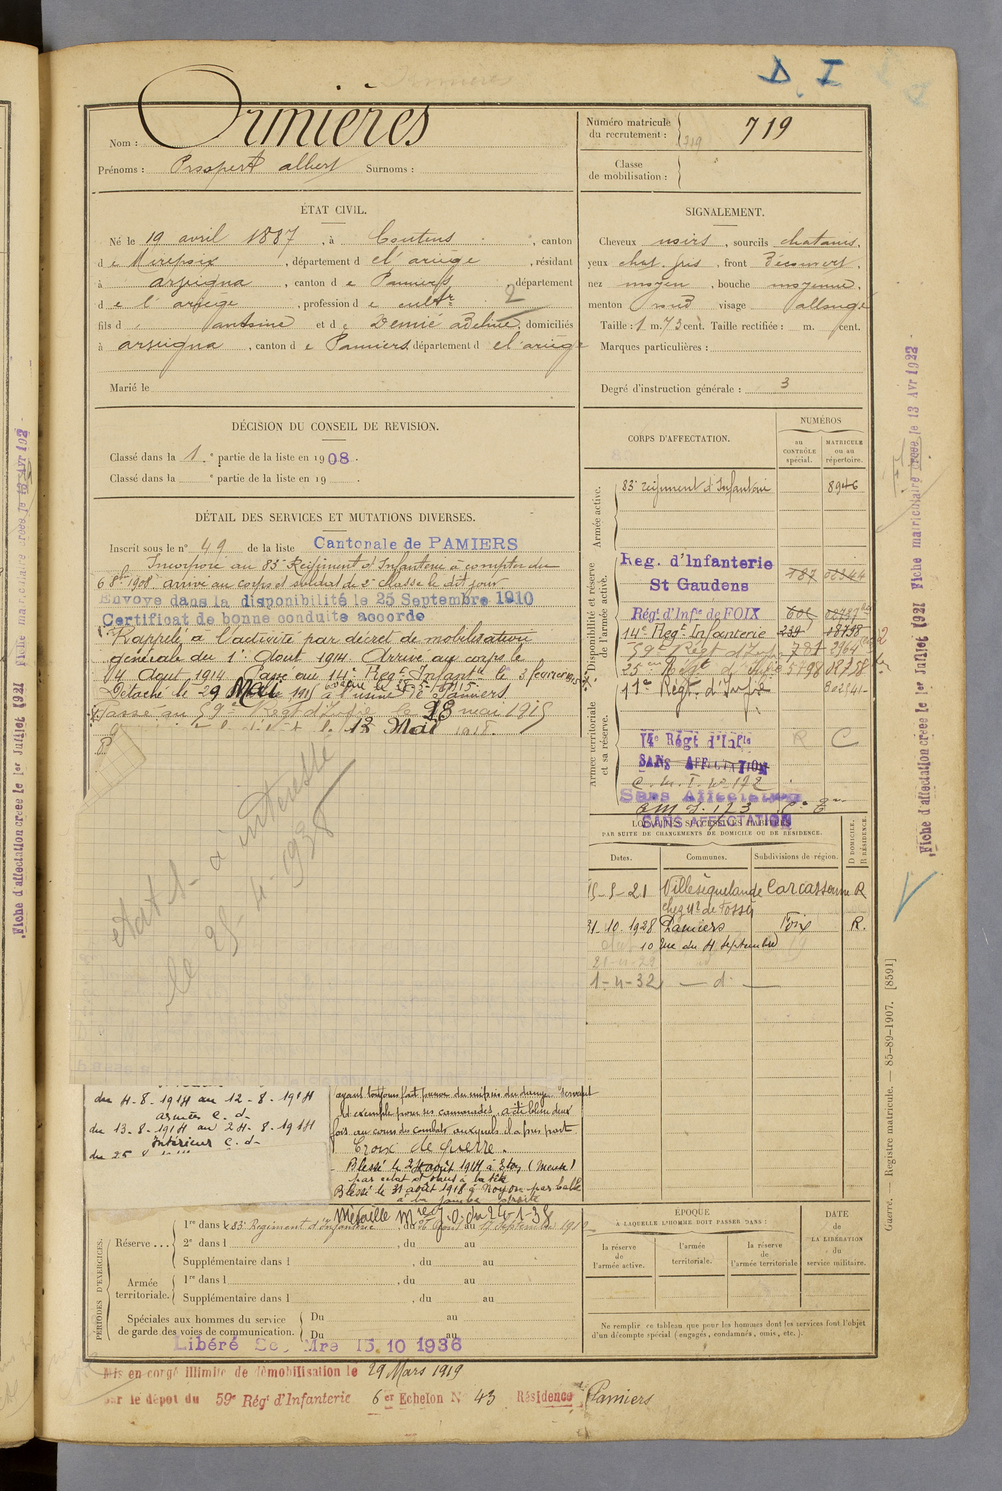 D. I
Nom : Ormières
Prénoms : Prosper Albert Surnoms :
Numéro matricule du recrutement : 719
Classe de mobilisation :
ÉTAT CIVIL.
Né le 19 avril 1887, à Coutens, canton
de Mirepoix, département de l'ariège, résidant
à arvigna, canton de Pamiers, département
de l'ariège, profession de cultr 2
fils d' antoine et de Demié Adeline, domiciliés
à arvigna, canton de Pamiers, département de l'ariège
Marié le
SIGNALEMENT.
Cheveux noirs, sourcils chatains,
yeux chat. gris, front découvert,
nez moyen, bouche moyenne,
menton rond visage allongé
Taille : 1 m. 73 cent. Taille rectifiée : m. cent.
Marques particulières :
Degré d'instruction générale : 3
DÉCISION DU CONSEIL DE REVISION.
Classé dans la 1re partie de la liste en 1908.
Classé dans la e partie de la liste en 19 .
DÉTAIL DES SERVICES ET MUTATIONS DIVERSES.
Inscrit sous le n° 49 de la liste Cantonale de PAMIERS
Incorporé au 83e Régiment d'Infanterie à compter du
6 8bre 1908 arrivé au corps et soldat de 2e classe le dit jour
Envoyé dans la disponibilité le 25 Septembre 1910
Certificat de bonne conduite accordé
Rappelé à l'activité par décret de mobilisation
générale du 1er Aout 1914 Arrivé au corps le
4 Aout 1914. Passé au 14e Régt Infantie le 3 fevrier 1915
Détaché le 29 Mai 1915 à l'usine de Pamiers
Passé au 59e Régt d'Infie le 28 mai 1915
CORPS D'AFFECTATION.
NUMÉROS
au CONTRÔLE spécial.
MATRICULE ou au répertoire.
Armée active.
83e régiment d'Infanterie 8946
Disponibilité et réserve de l'armée active.
Reg. d'Infanterie
St Gaudens 187
Régt d'Infie de FOIX
14e Regt Infanterie
59e Régt d'Infie
25me Régt d'Infie
Armée territoriale et sa réserve.
14e Régt d'Infie
SANS AFFECTATION
C.M.I. n° 172
Sans Affectation
SANS AFFECTATION
PAR SUITE DE CHANGEMENTS DE DOMICILE OU DE RÉSIDENCE.
Dates. Communes. Subdivisions de région. D DOMICILE. R RÉSIDENCE.
Villesèquelande Carcassonne R
31-10.1928 Pamiers Foix R.
10 Rue du 4 Septembre
1-4-32 — d° —
Etat S. à intéressé
le 25-4-1938
du 4-8-1914 au 12-8-1914
Armées C. d-
du 13-8-1914 au 24-8-1914
Intérieur C. d-
du 25
ayant toujours fait preuve du mépris du danger "Servant
d'exemple pour ses camarades, a été blessé deux
fois au cours des combats auxquels il a pris part
Croix de guerre.
Blessé le 24 août 1914 à Eton (Meuse)
par éclat d'obus à la tête
Blessé le 31 août 1918 à Noyon par balle
à la jambe droite
Médaille Mre J.O. du 24-1-38
PÉRIODES D'EXERCICES.
Réserve ...
1re dans l 83e Régiment d'Infanterie, du 26 Aout au 17 Septembre 1912
2e dans l , du au
Supplémentaire dans l , du au
Armée territoriale.
1re dans l , du au
Supplémentaire dans l , du au
Spéciales aux hommes du service de garde des voies de communication.
Du au
Du au
Libéré Se Mre 15.10 1936
ÉPOQUE
À LAQUELLE L'HOMME DOIT PASSER DANS :
la réserve de l'armée active.
l'armée territoriale.
la réserve de l'armée territoriale
DATE de LA LIBÉRATION du service militaire.
Ne remplir ce tableau que pour les hommes dont les services font l'objet
d'un décompte spécial (engagés, condamnés, omis, etc.).
Mis en congé illimité de démobilisation le 29 Mars 1919
par le dépôt du 59e Régt d'Infanterie 6er Echelon N° 43 Résidence Pamiers
Fiche d'affectation créée le 1er Juillet 1921 Fiche matriculaire créée le 13 Avr 1922
Guerre. — Registre matricule. — 85-89-1907. [8591]
Fiche d'affectation créée le 1er Juillet 1921 Fiche matriculaire créée le